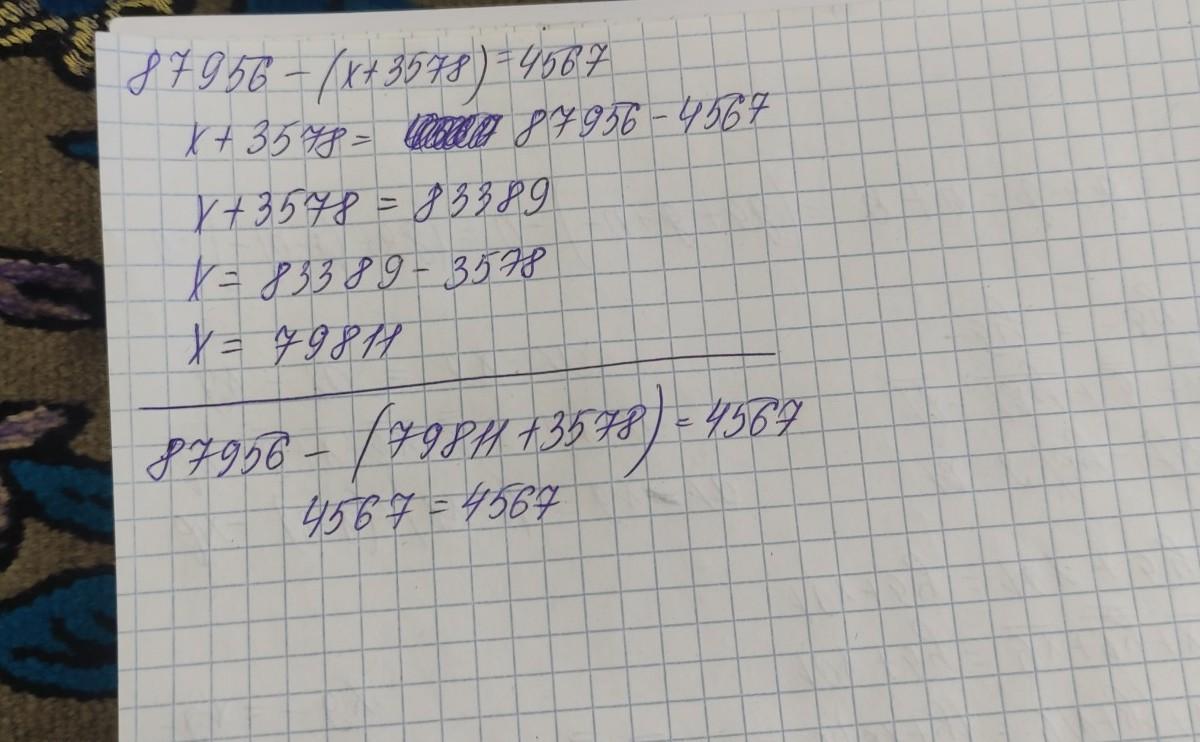 87956 - (x+3578) = 4567
x + 3578 = 87956 - 4567
x + 3578 = 83389
x = 83389 - 3578
x = 79811
87956 - (79811 + 3578) = 4567
4567 = 4567